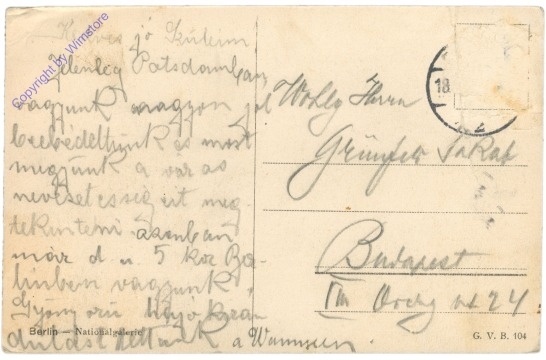 Kedves jó Szüleim
Jelenleg Potsdamban
vagyunk nagyon jól
ebédeltünk és most
megyünk a város
nevezetességeit meg-
tekinteni azonban
már d. u. 5 kor Ber-
linben vagyunk.
Gyönyörű hajókiran
dulást tettünk a Wannseen.
Copyright by Wimstore
18.
Wohlg Herrn
Grünfeld Jakab
Budapest
VIII
24
Berlin — Nationalgalerie
G. V. B. 104